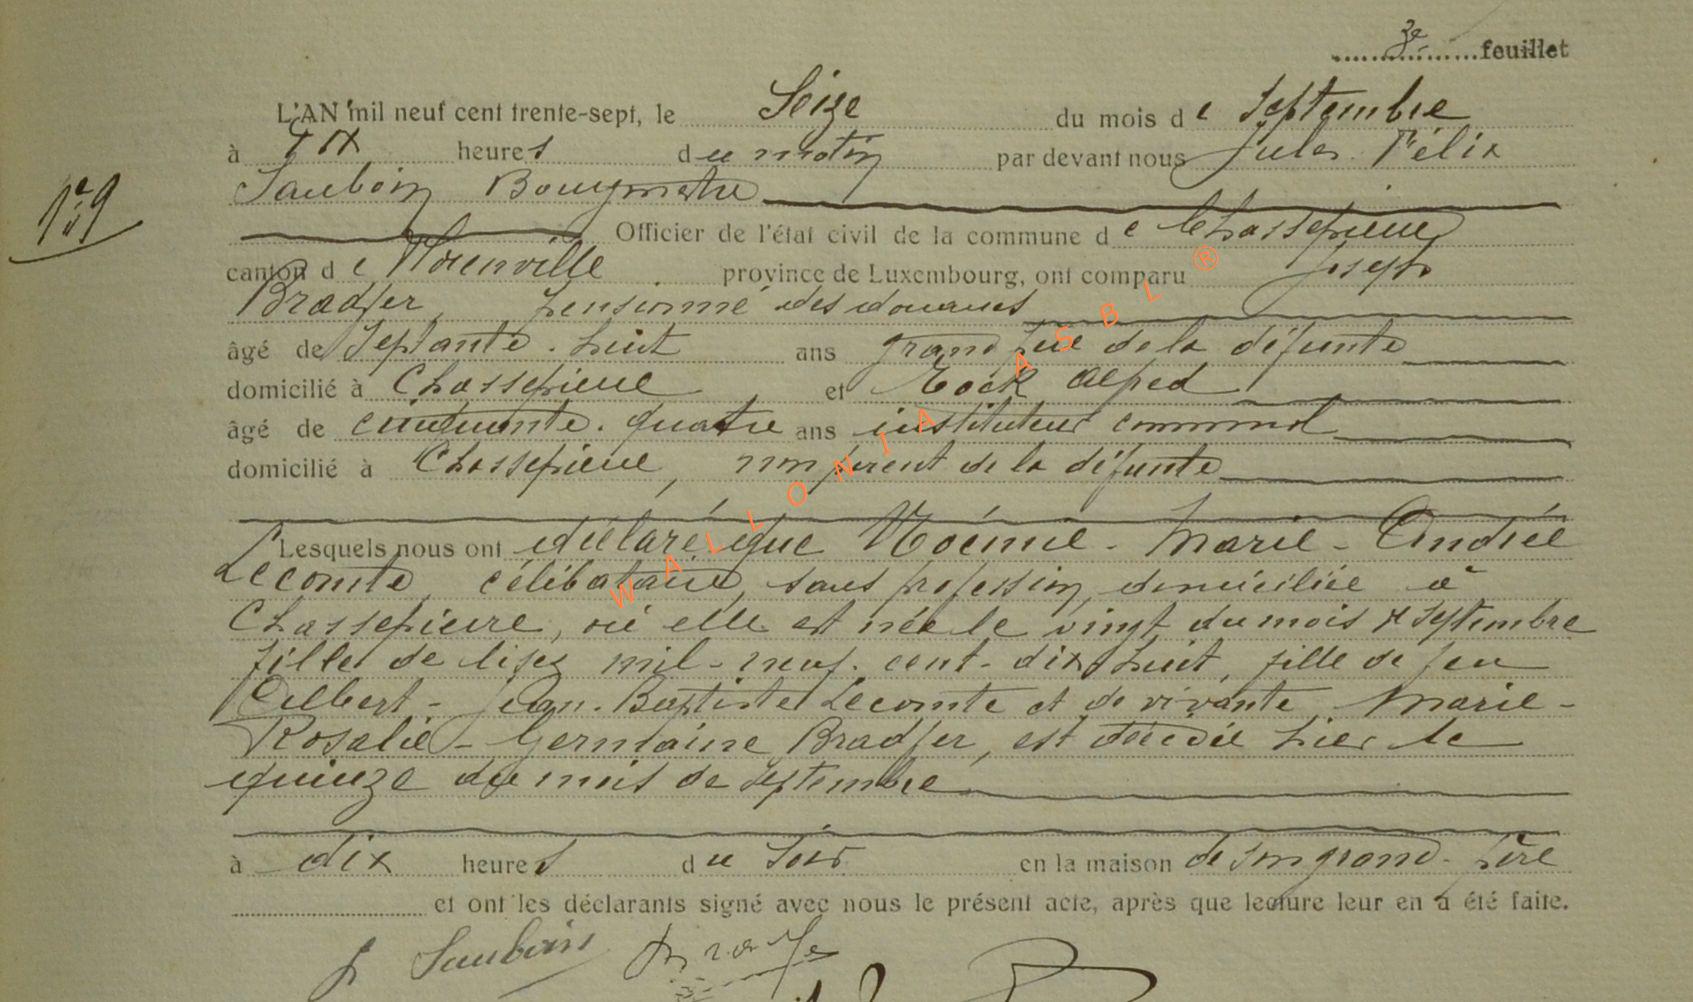 3e feuillet
L'AN mil neuf cent trente-sept, le Seize du mois de Septembre
à dix heures du matin par devant nous Jules Félix
Sauboin Bourgmestre
Officier de l'état civil de la commune de Chassepierre
N° 9
canton de Florenville province de Luxembourg, ont comparu Joseph
Bradfer, pensionné des douanes
âgé de Septante-huit ans grand père de la défunte
domicilié à Chassepierre et Rock Alfred
âgé de cinquante-quatre ans instituteur communal
domicilié à Chassepierre, non parent de la défunte
Lesquels nous ont déclaré que Noémie-Marie-Andrée
Lecomte, célibataire, sans profession, domiciliée à
Chassepierre, où elle est née le vingt du mois de septembre
mil-neuf-cent-dix-huit, fille de feu
Albert-Jean-Baptiste Lecomte et de vivante Marie-
Rosalie-Germaine Bradfer, est décédée hier le
quinze du mois de septembre
à dix heures du soir en la maison de son grand-père
et ont les déclarants signé avec nous le présent acte, après que lecture leur en a été faite.
J Sauboin
WALLONIA ASBL ®